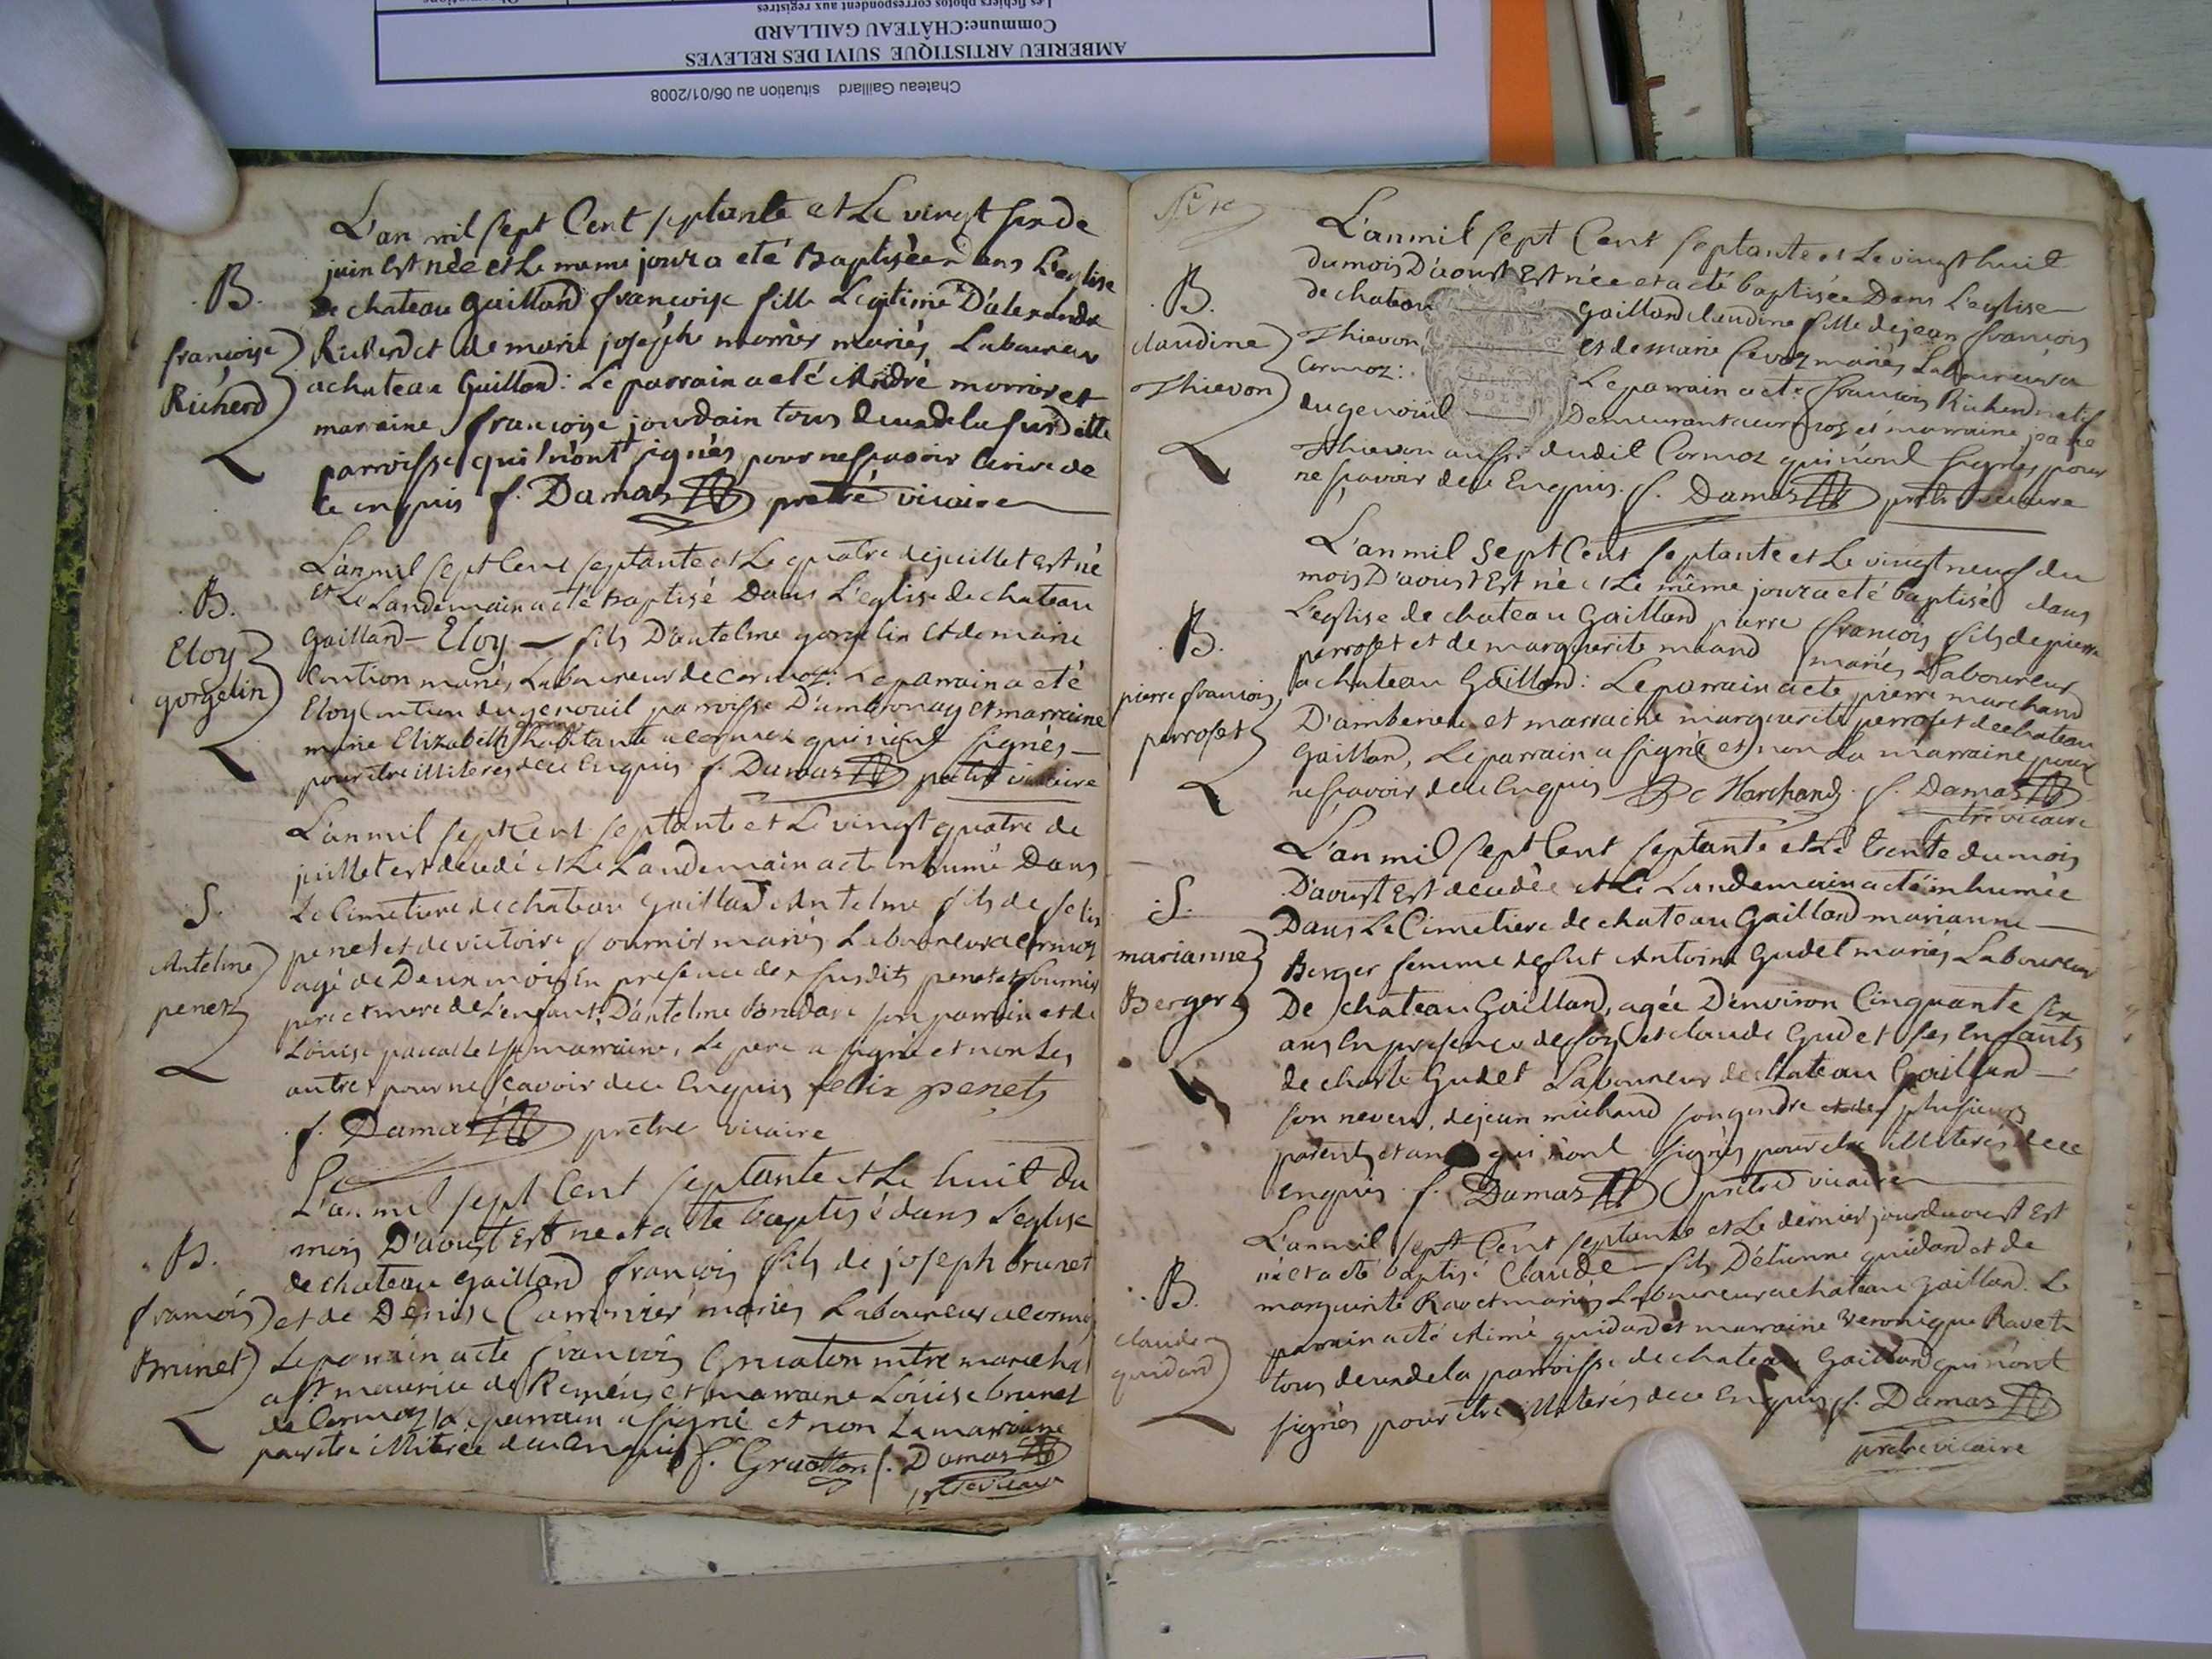 Chateau Gaillard situation au 06/01/2008
AMBERIEU ARTISTIQUE SUIVI DES RELEVES
Commune:CHÂTEAU GAILLARD
Les fichiers photos correspondent aux registres
Observations
L'an mil sept Cent septante et Le vingt six de
juin Est née et Le meme jour a eté Baptisée dans L'eglise
de chateau gaillard françoise fille Legitime D'alexandre
Richerd et de marie josephe morrier mariés Laboureur
a chateau Guillard: Le parrain a eté André morrier et
marraine françoise jourdain tous deux de la susditte
parroisse qui n'ont signés pour ne sçavoir Ecrire de
ce enquis f. Damas prêtre vicaire
B.
françoise
Richerd
L'an mil sept Cent septante et Le quatre de juillet Est né
et Le Landemain a eté Baptisé Dans L'eglise de chateau
Gaillard - Eloy - fils D'antelme gorgelin et de marie
Coution mariés Laboureur de cormoz: Le parrain a eté
Eloy Coution du genouil parroisse D'ambronay et marraine
marie Elizabeth habitante a cormoz qui n'ont signés -
pour être illiterés de ce Enquis f. Damas prêtre vicaire
B.
Eloy
gorgelin
L'an mil sept Cent septante et Le vingt quatre de
juillet est décedé et Le Landemain a eté inhumé Dans
Le Cimetiere de chateau Gaillard Antelme fils de felix
penet et de victoire fournier mariés Laboureur a cormoz
agé de Deux mois En presence des susdits penet et fournier
pere et mere de L'enfant, D'antelme son parrain et de
Loüise sa marraine, Le pere a signé et non Les
autres pour ne sçavoir de ce Enquis felix penet
f. Damas prêtre vicaire
S.
Antelme
penet
L'an mil sept Cent septante et Le huit du
mois D'aoust Est né et a eté baptisé dans L'eglise
de chateau Gaillard françois fils de joseph brunet
et de Denise Cammier mariés Laboureur a cormoz
Le parrain a eté françois Gruaton mtre marechal
a st maurice de Remens et marraine Loüise brunet
de Cormoz Le parrain a signé et non La marraine
pour être illiterée de ce Enquis f. Gruatton f. Damas
ptre vicaire
B.
françois
Brunet
L'an mil sept Cent septante et Le vingt huit
du mois D'aoust Est née et a eté baptisée Dans L'eglise
de chateau Gaillard claudine fille de jean françois
Thievon et de marie mariés Laboureur a
Cormoz: Le parrain a eté françois Richerd natif
du genouil Demeurant a cormoz et marraine
Thievon aussi dudit Cormoz qui n'ont signés pour
ne sçavoir de ce Enquis. f. Damas prêtre vicaire
B.
claudine
Thievon
L'an mil sept Cent septante et Le vingt neuf du
mois D'aoust Est né et Le même jour a eté baptisé dans
L'eglise de chateau Gaillard pierre françois fils de pierre
perroset et de marguerite mariés Laboureur
a chateau Gaillard: Le parrain a eté pierre marchand
D'amberieu et marraine marguerite perroset de chateau
Gaillard, Le parrain a signé et non La marraine pour
ne sçavoir de ce Enquis Marchand f. Damas
ptre vicaire
B.
pierre françois
perroset
L'an mil sept Cent septante et Le trente du mois
D'aoust Est decedée et Le Landemain a eté inhumée
Dans Le Cimetiere de chateau Gaillard marianne
Berger femme de fut Antoine Gudet mariés Laboureur
De chateau Gaillard, agée D'environ Cinquante six
ans En presence de et claude Gudet ses Enfants
de charle Gudet Laboureur de chateau Gaillard
son neveu, de jean michaud son gendre et de plusieurs
parents et qui n'ont signés pour etre illiterés de ce
enquis f. Damas prêtre vicaire
S.
marianne
Berger
L'an mil sept Cent septante et Le dernier jour d'aoust Est
né et a eté baptisé Claude - fils D'étienne guidard et de
marguerite Ravet mariés Laboureur a chateau Gaillard. Le
parrain a eté Aimé guidard et marraine veronique Ravet
tous deux de la parroisse de chateau Gaillard qui n'ont
signés pour etre illiterés de ce Enquis f. Damas
prêtre vicaire
B.
claude
guidard